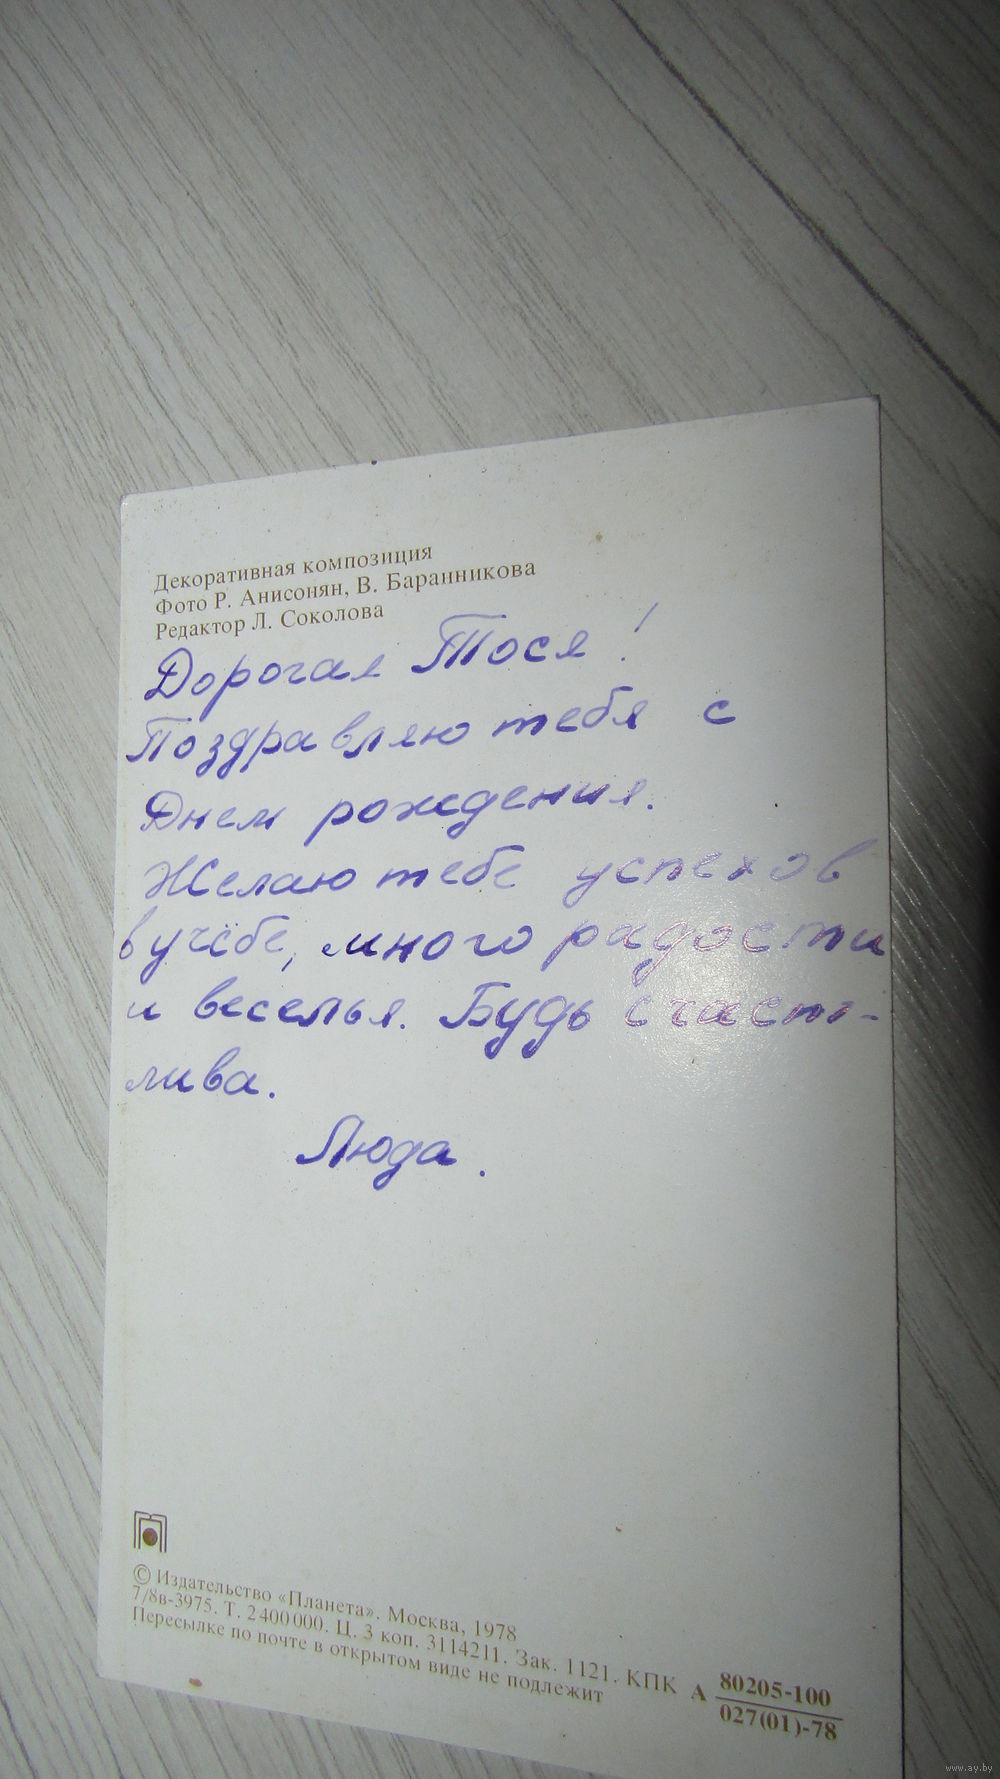 Декоративная композиция
Фото Р. Анисонян, В. Баранникова
Редактор Л. Соколова
Дорогая Тося!
Поздравляю тебя с
Днем рождения.
Желаю тебе успехов
в учёбе, много радости
и веселья. Будь счаст-
лива.
Люда.
© Издательство «Планета». Москва, 1978
7/8в-3975. Т. 2 400 000. Ц. 3 коп. 3114211. Зак. 1121. КПК
Пересылке по почте в открытом виде не подлежит
А 80205-100
027(01)-78
www.ay.by